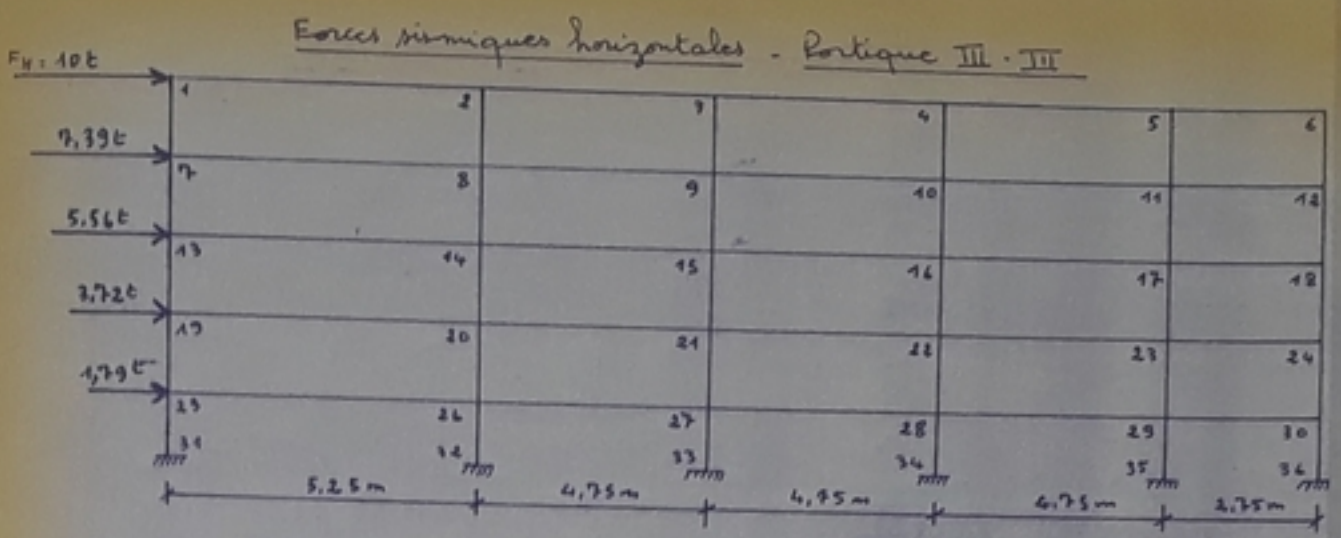 Forces sismiques horizontales - Portique III-III
FH = 10t
1 2 3 4 5 6
7,39t
7 8 9 10 11 12
5.56t
13 14 15 16 17 18
3,72t
19 20 21 22 23 24
1,79t
25 26 27 28 29 30
31 32 33 34 35 36
5,25m 4,75m 4,75m 4,75m 2,75m